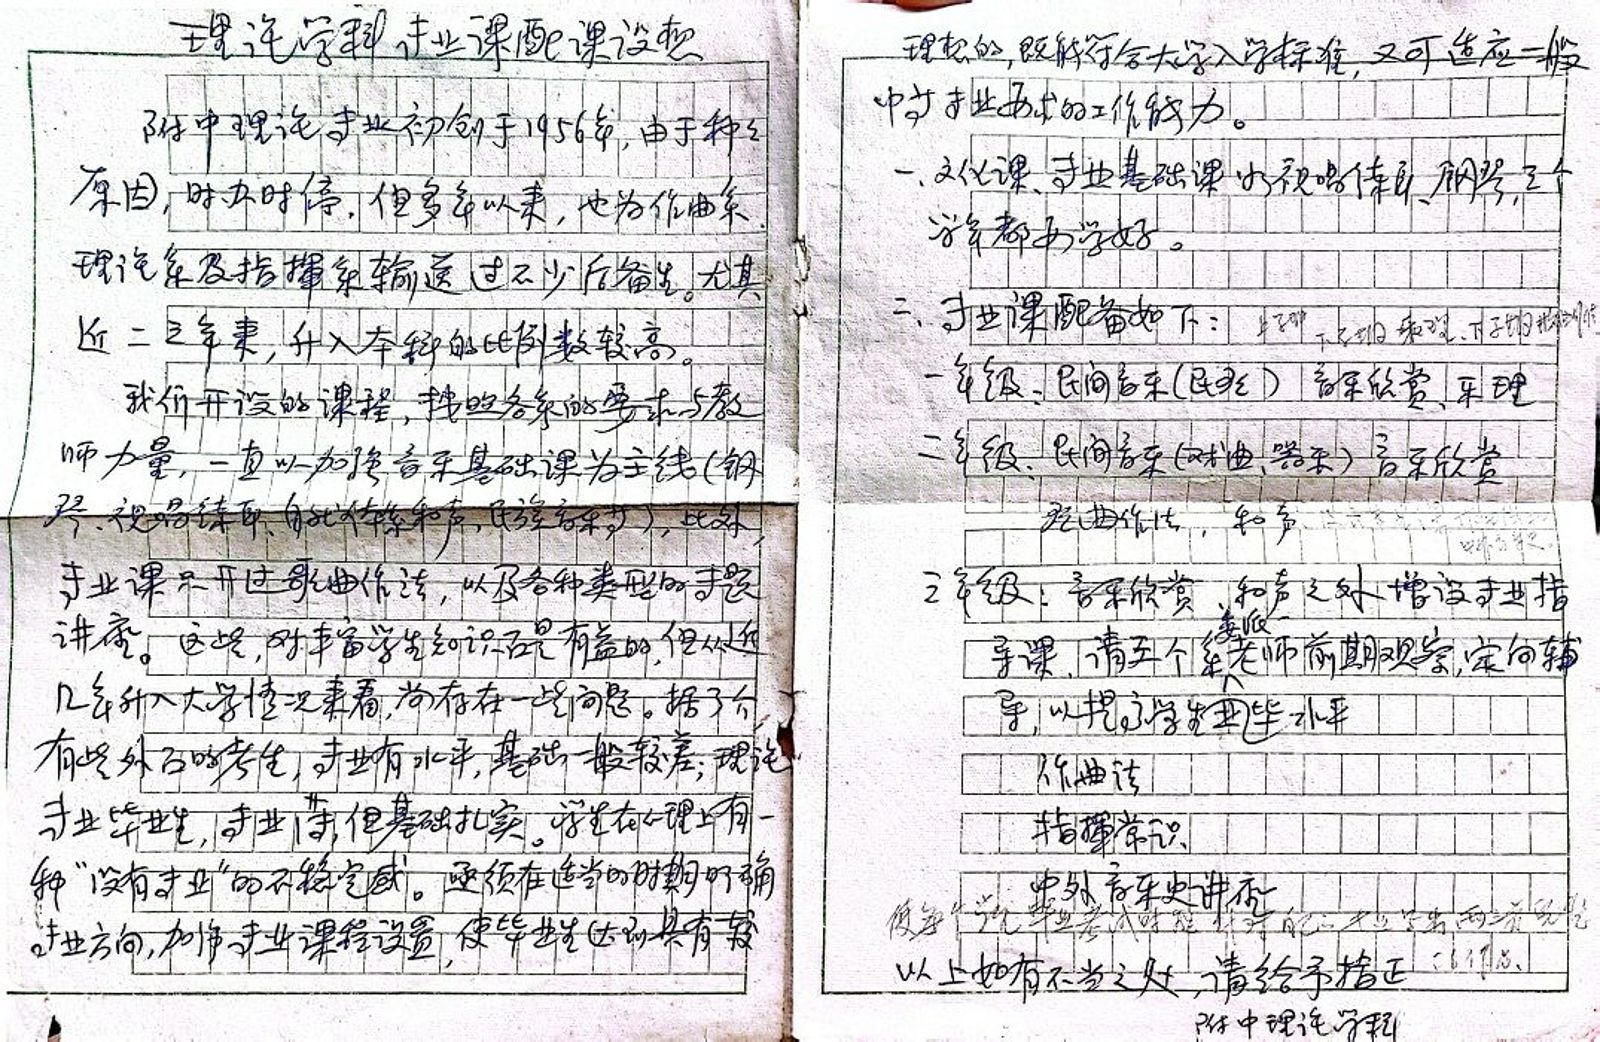 理论学科专业课配课设想
附中理论专业初创于1956年,由于种之
原因,时办时停,但多年以来,也为作曲系.
理论系及指揮系输送过不少后备生。尤其
近二三年来,升入本科的比例数较高。
我们开设的课程,按照各系的要求与教
师力量,一直以加强音乐基础课为主线(钢
琴、视唱练耳、和声,民族音乐等),此外,
专业课只开过歌曲作法,以及各种类型的专题
讲座。这些,对丰富学生知识面是有益的,但从近
几年升入大学情况来看,尚存在一些问题。据了介
有些外面的考生,专业有水平,基础一般较差;理论
专业毕业生,专业薄,但基础扎实。学生在心理上有一
种"没有专业"的不稳定感。亟须在适当的时期明确
专业方向,加强专业课程设置,使毕业生达到具有较
理想的,既能符合大学入学标准,又可适应一般
中等专业要求的工作能力。
一、文化课、专业基础课如视唱练耳、钢琴,三个
学年都要学好。
二、专业课配备如下:
一年级:民间音乐(民歌) 音乐欣赏、乐理
二年级:民间音乐(戏曲、器乐) 音乐欣赏
歌曲作法,和声
三年级:音乐欣赏、和声之外增设专业指
导课,请五个系委派老师前期观察,定向辅
导,以提高学生毕业水平
作曲法
指揮常识
中外音乐史讲座
使每个学生毕业考试时能
以上如有不当之处,请给予指正
附中理论学科